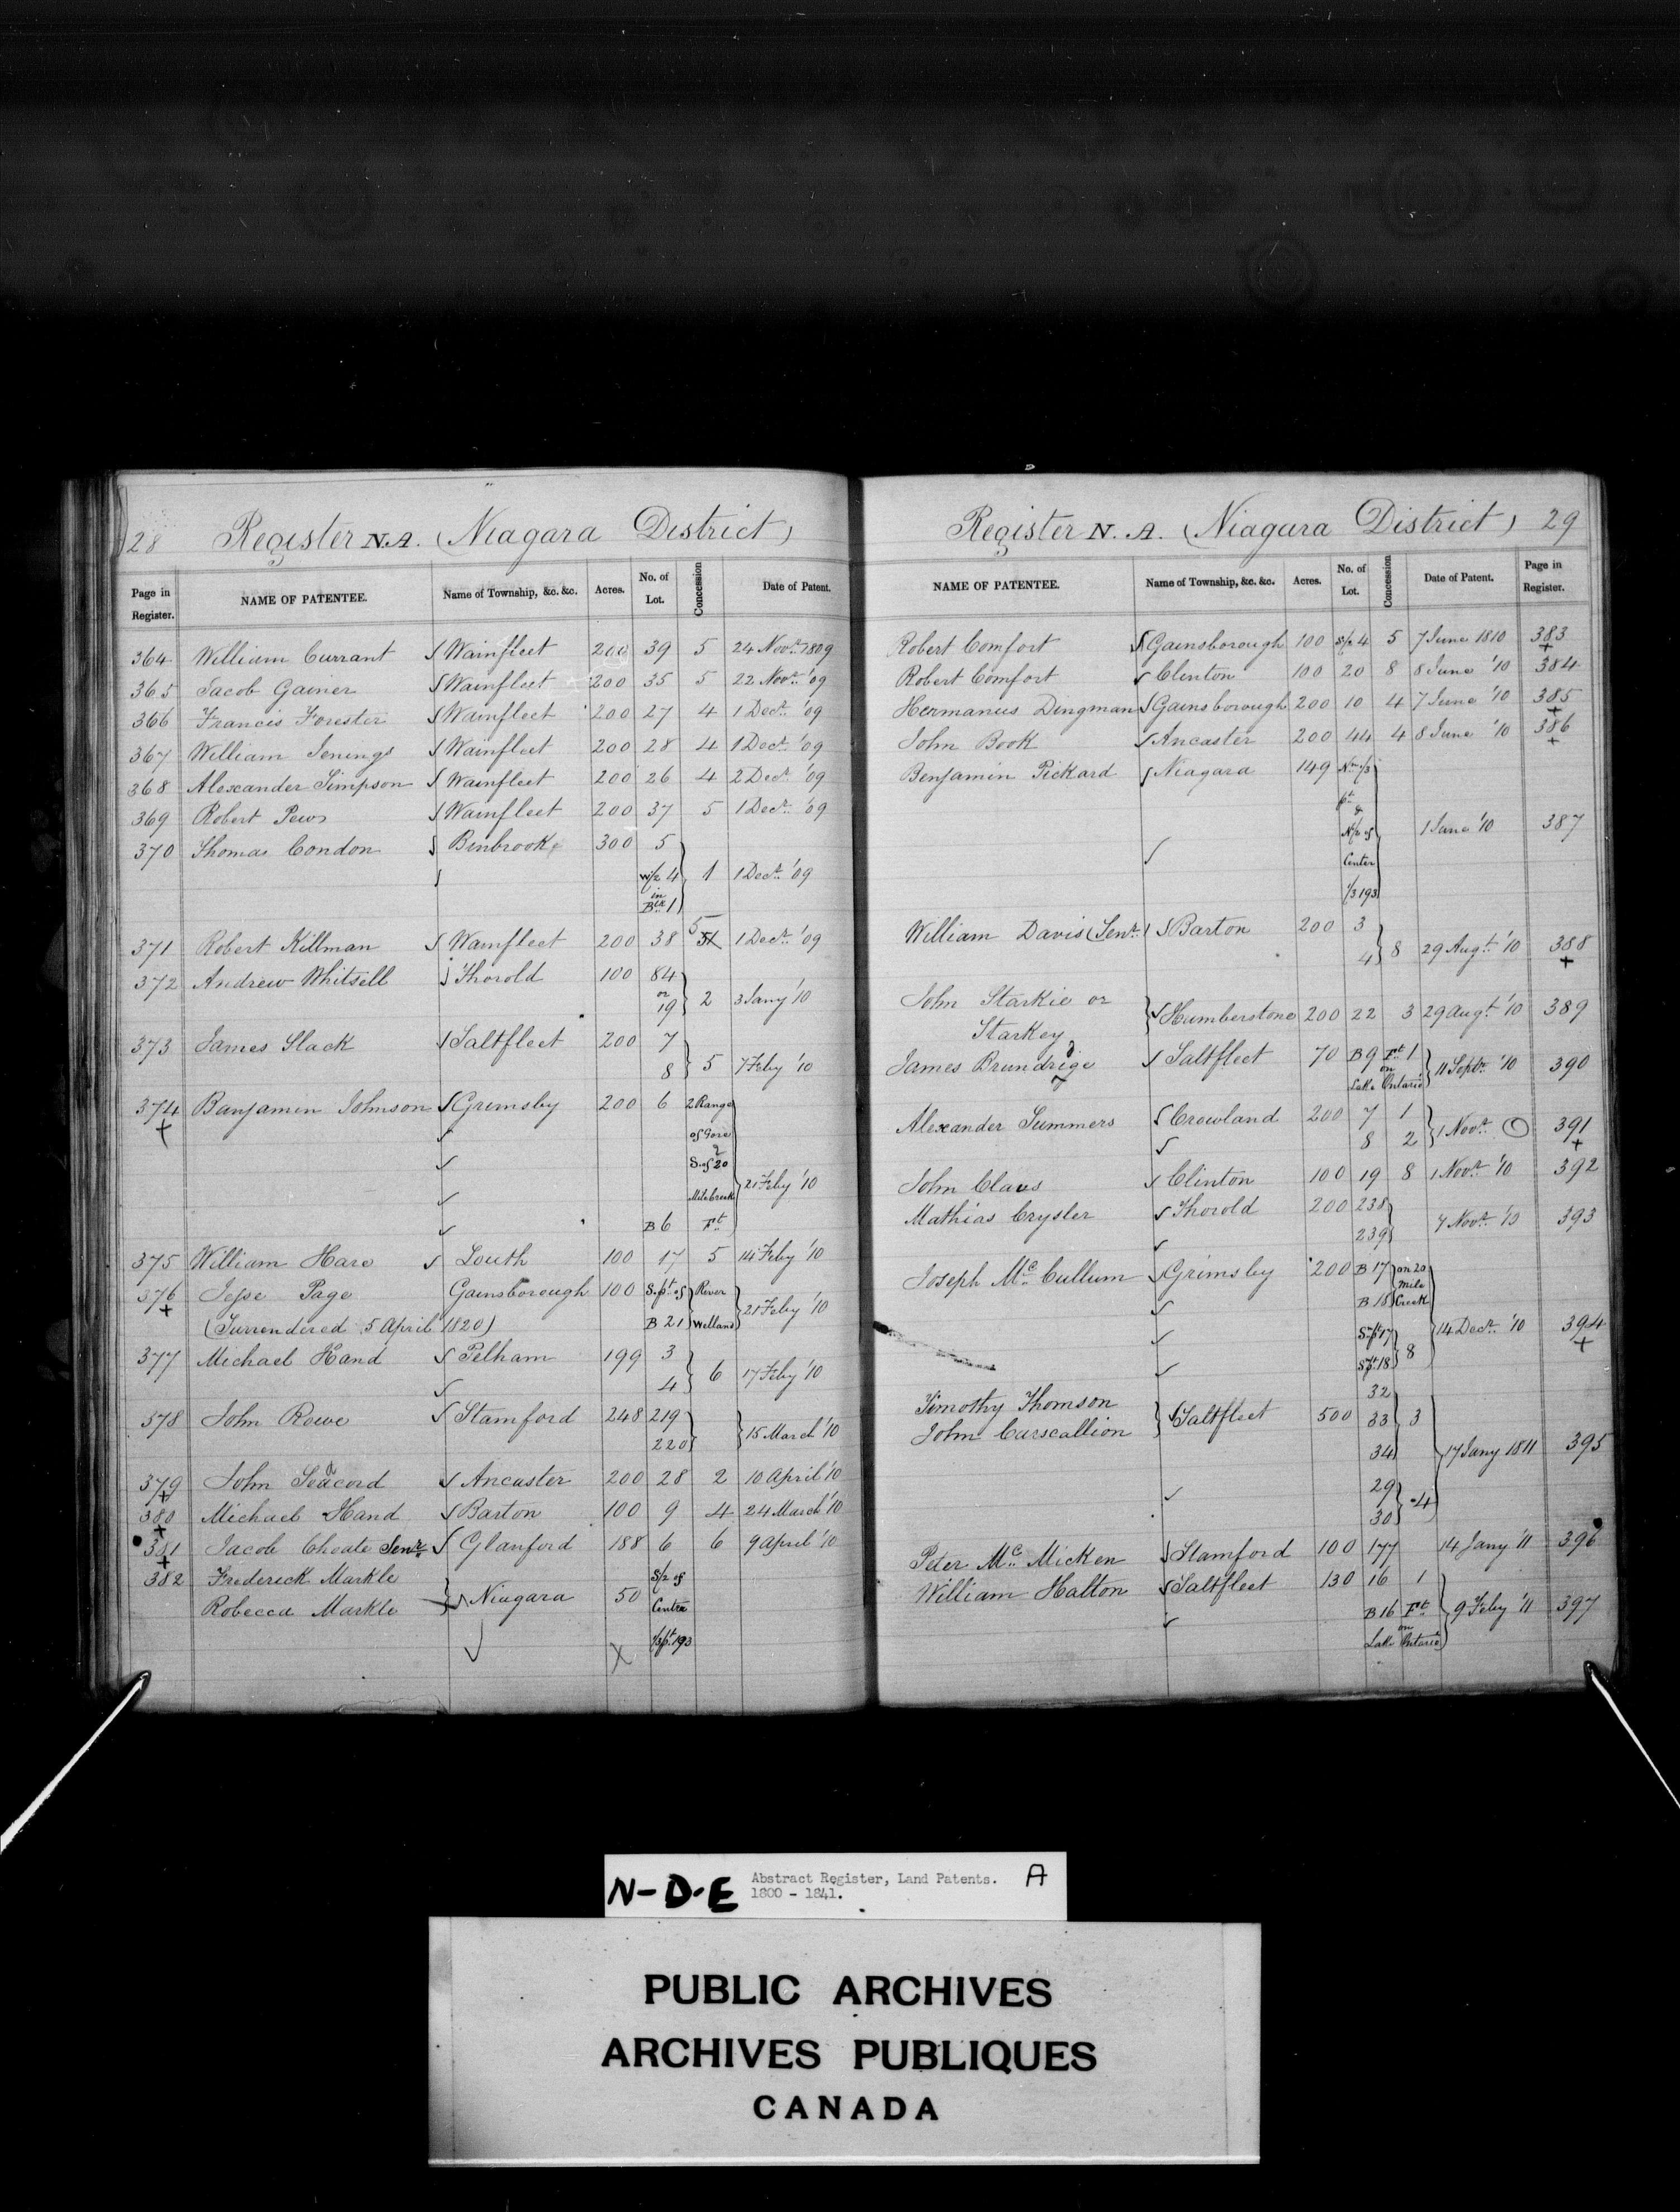 28 Register N.A. (Niagara District)
Page in Register. NAME OF PATENTEE. Name of Township, &c. &c. Acres. No. of Lot. Concession Date of Patent.
364 William Currant Wainfleet 200 39 5 24 Novr. 1809
365 Jacob Gainer Wainfleet 200 35 5 22 Novr. '09
366 Francis Forester Wainfleet 200 27 4 1 Decr. '09
367 William Jenings Wainfleet 200 28 4 1 Decr. '09
368 Alexander Simpson Wainfleet 200 26 4 2 Decr. '09
369 Robert Pews Wainfleet 200 37 5 1 Decr. '09
370 Thomas Condon Binbrook 300 5
W/2 4 1 1 Decr. '09
in
Blk 1
371 Robert Killman Wainfleet 200 38 5 1 Decr. '09
372 Andrew Whitsell Thorold 100 84
or 2 3 Jany '10
19
373 James Slack Saltfleet 200 7
8 5 7 Feby '10
374 Banjamin Johnson Grimsby 200 6 2 Range
of Gore
S. of 20
Mile Creek 21 Feby '10
B 6 Ft.
375 William Hare Louth 100 17 5 14 Feby '10
376 Jesse Page Gainsborough 100 S. pt. of River
(Surrendered 5 April 1820) B 21 Welland 21 Feby '10
377 Michael Hand Pelham 199 3
4 6 17 Feby '10
378 John Rowe Stamford 248 219
220 15 March '10
379 John Seacord Ancaster 200 28 2 10 April '10
380 Michael Hand Barton 100 9 4 24 March '10
381 Jacob Choate Senr. Glanford 188 6 6 9 April '10
382 Frederick Markle S/2 of
Rebecca Markle Niagara 50 Centre
1/3 pt. 193
Register N. A. (Niagara District) 29
NAME OF PATENTEE. Name of Township, &c. &c. Acres. No. of Lot. Concession Date of Patent. Page in Register.
Robert Comfort Gainsborough 100 S/2 4 5 7 June 1810 383
Robert Comfort Clinton 100 20 8 8 June '10 384
Hermanus Dingman Gainsborough 200 10 4 7 June '10 385
John Book Ancaster 200 44 4 8 June '10 386
Benjamin Pickard Niagara 149 Nn 1/3
pt.
&
N/2 of 1 June '10 387
Center
1/3 193
William Davis (Senr.) Barton 200 3
4 8 29 Augt. '10 388
John Starkie or
Starkey Humberstone 200 22 3 29 Augt. '10 389
James Brundrige Saltfleet 70 B 9 Ft. 1
on
Lake Ontario 11 Septr. '10 390
Alexander Summers Crowland 200 7 1
8 2 1 Novr. 391
John Claus Clinton 100 19 8 1 Novr. '10 392
Mathias Crysler Thorold 200 238
239 7 Novr. '10 393
Joseph Mc. Cullum Grimsby 200 B 17 on 20
Mile
B 18 Creek
S. pt. 17 14 Decr. '10 394
S. pt. 18 8
Timothy Thomson 32
John Carscallion Saltfleet 500 33 3
34 17 Jany 1811 395
29
30 4
Peter Mc. Micken Stamford 100 177 14 Jany '11 396
William Halton Saltfleet 130 16 1
B 16 Ft. 9 Feby '11 397
on
Lake Ontario
N-D-E Abstract Register, Land Patents. A
1800 - 1841.
PUBLIC ARCHIVES
ARCHIVES PUBLIQUES
CANADA